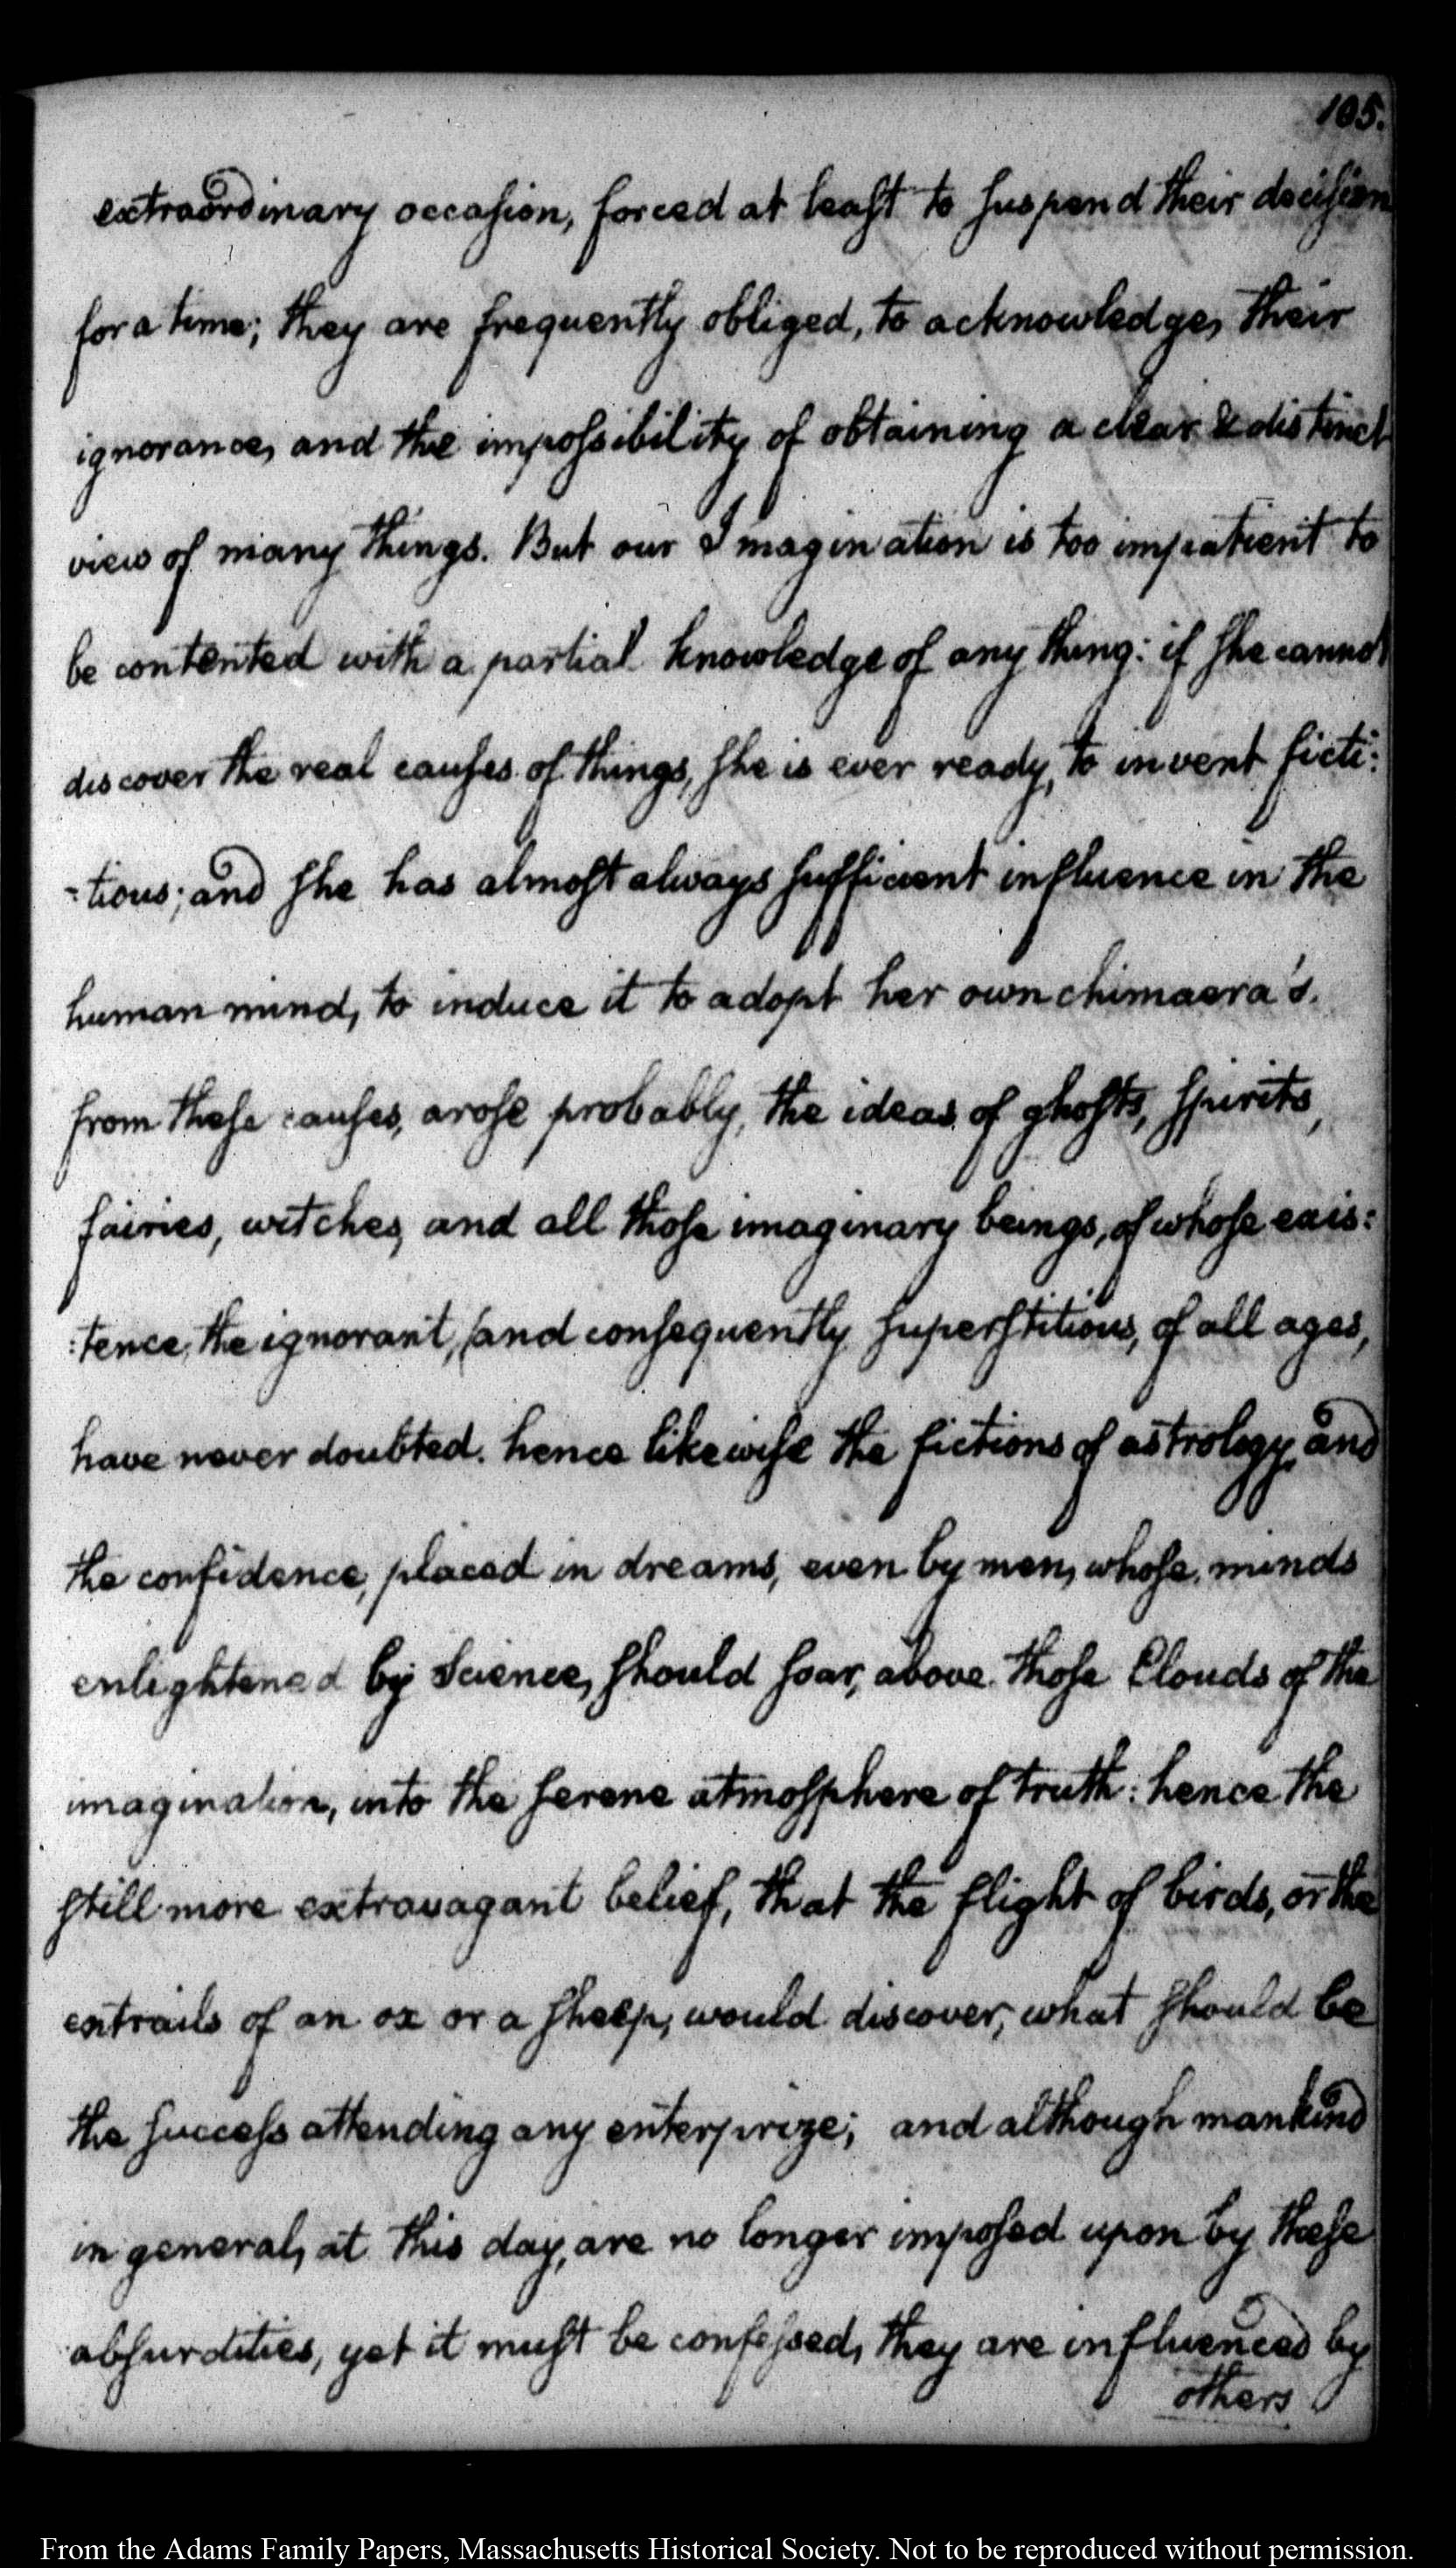 105.
extraordinary occasion, forced at least to suspend their decision
for a time; they are frequently obliged, to acknowledge, their
ignorance, and the impossibility of obtaining a clear & distinct
view of many things. But our Imagination is too impatient to
be contented with a partial knowledge of any thing: if she cannot
discover the real causes of things, she is ever ready, to invent ficti:
-tious; and she has almost always sufficient influence in the
human mind, to induce it to adopt her own chimaera's.
from these causes, arose probably, the ideas of ghosts, spirits,
fairies, witches, and all those imaginary beings, of whose exis:
:tence, the ignorant, (and consequently superstitious, of all ages,
have never doubted. hence likewise the fictions of astrology, and
the confidence, placed in dreams, even by men, whose, minds
enlightened by Science, should soar, above those Clouds of the
imagination, into the serene atmosphere of truth: hence the
still more extravagant belief, that the flight of birds, or the
entrails of an ox or a sheep, would discover, what should be
the success attending any enterprize; and although mankind
in general, at this day, are no longer imposed upon by these
absurdities, yet it must be confessed, they are influenced by
others
From the Adams Family Papers, Massachusetts Historical Society. Not to be reproduced without permission.